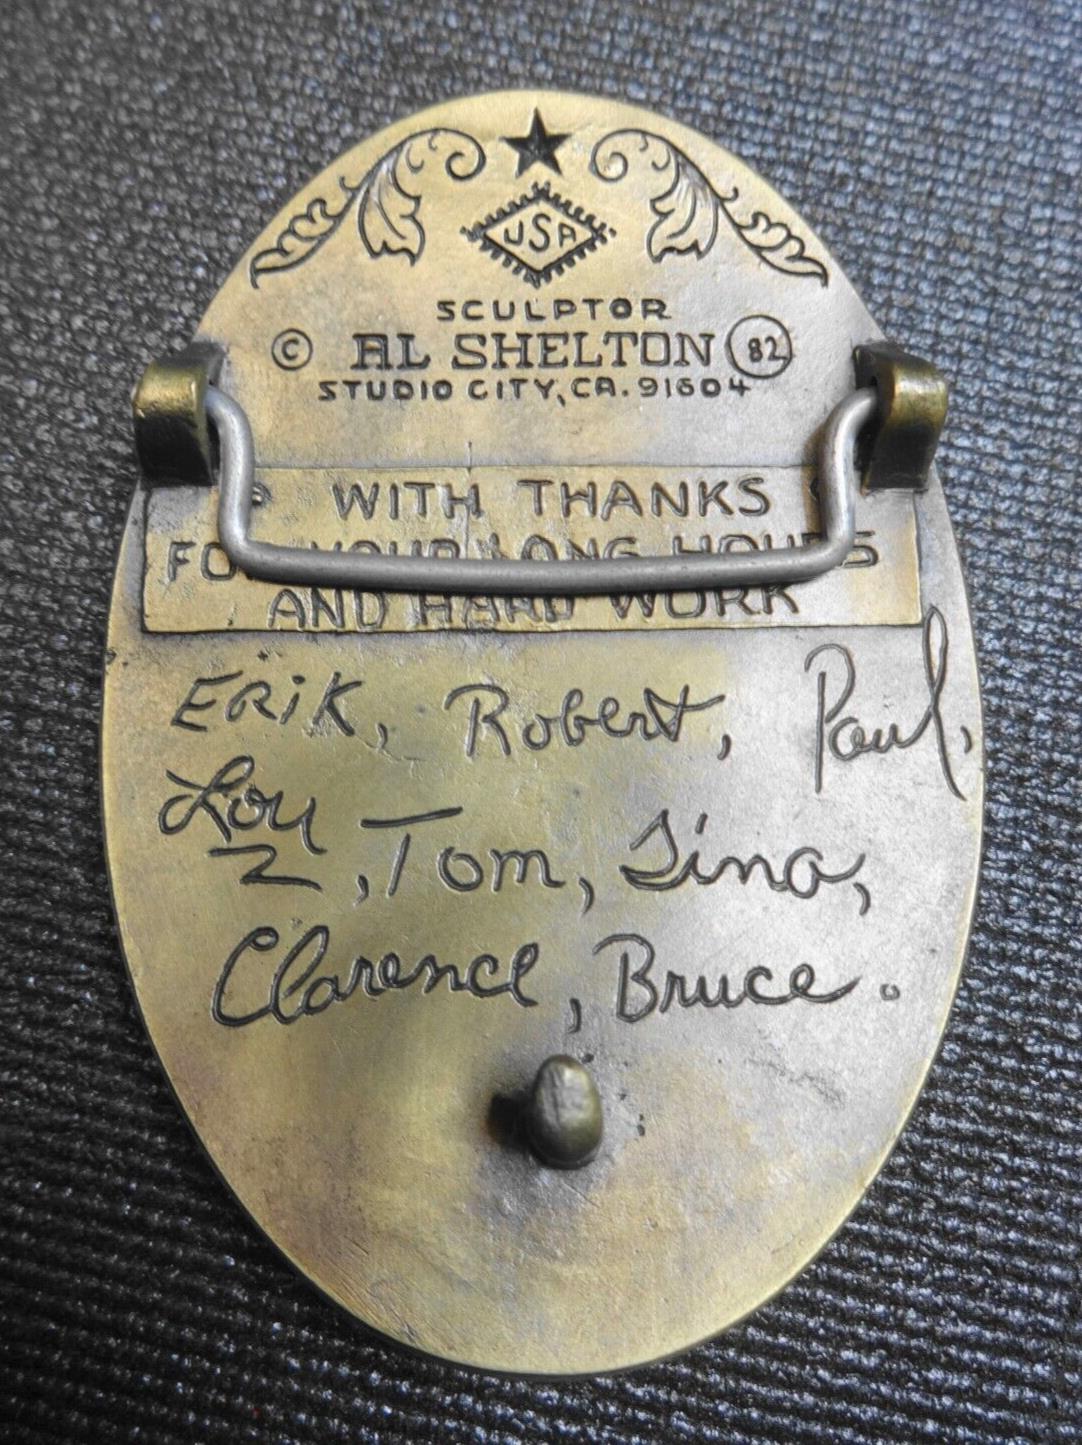 USA
SCULPTOR
© AL SHELTON 82
STUDIO CITY, CA. 91604
WITH THANKS
FOR YOUR LONG HOURS
AND HARD WORK
ERiK, Robert, Paul,
Lou, Tom, Tina,
Clarence, Bruce.